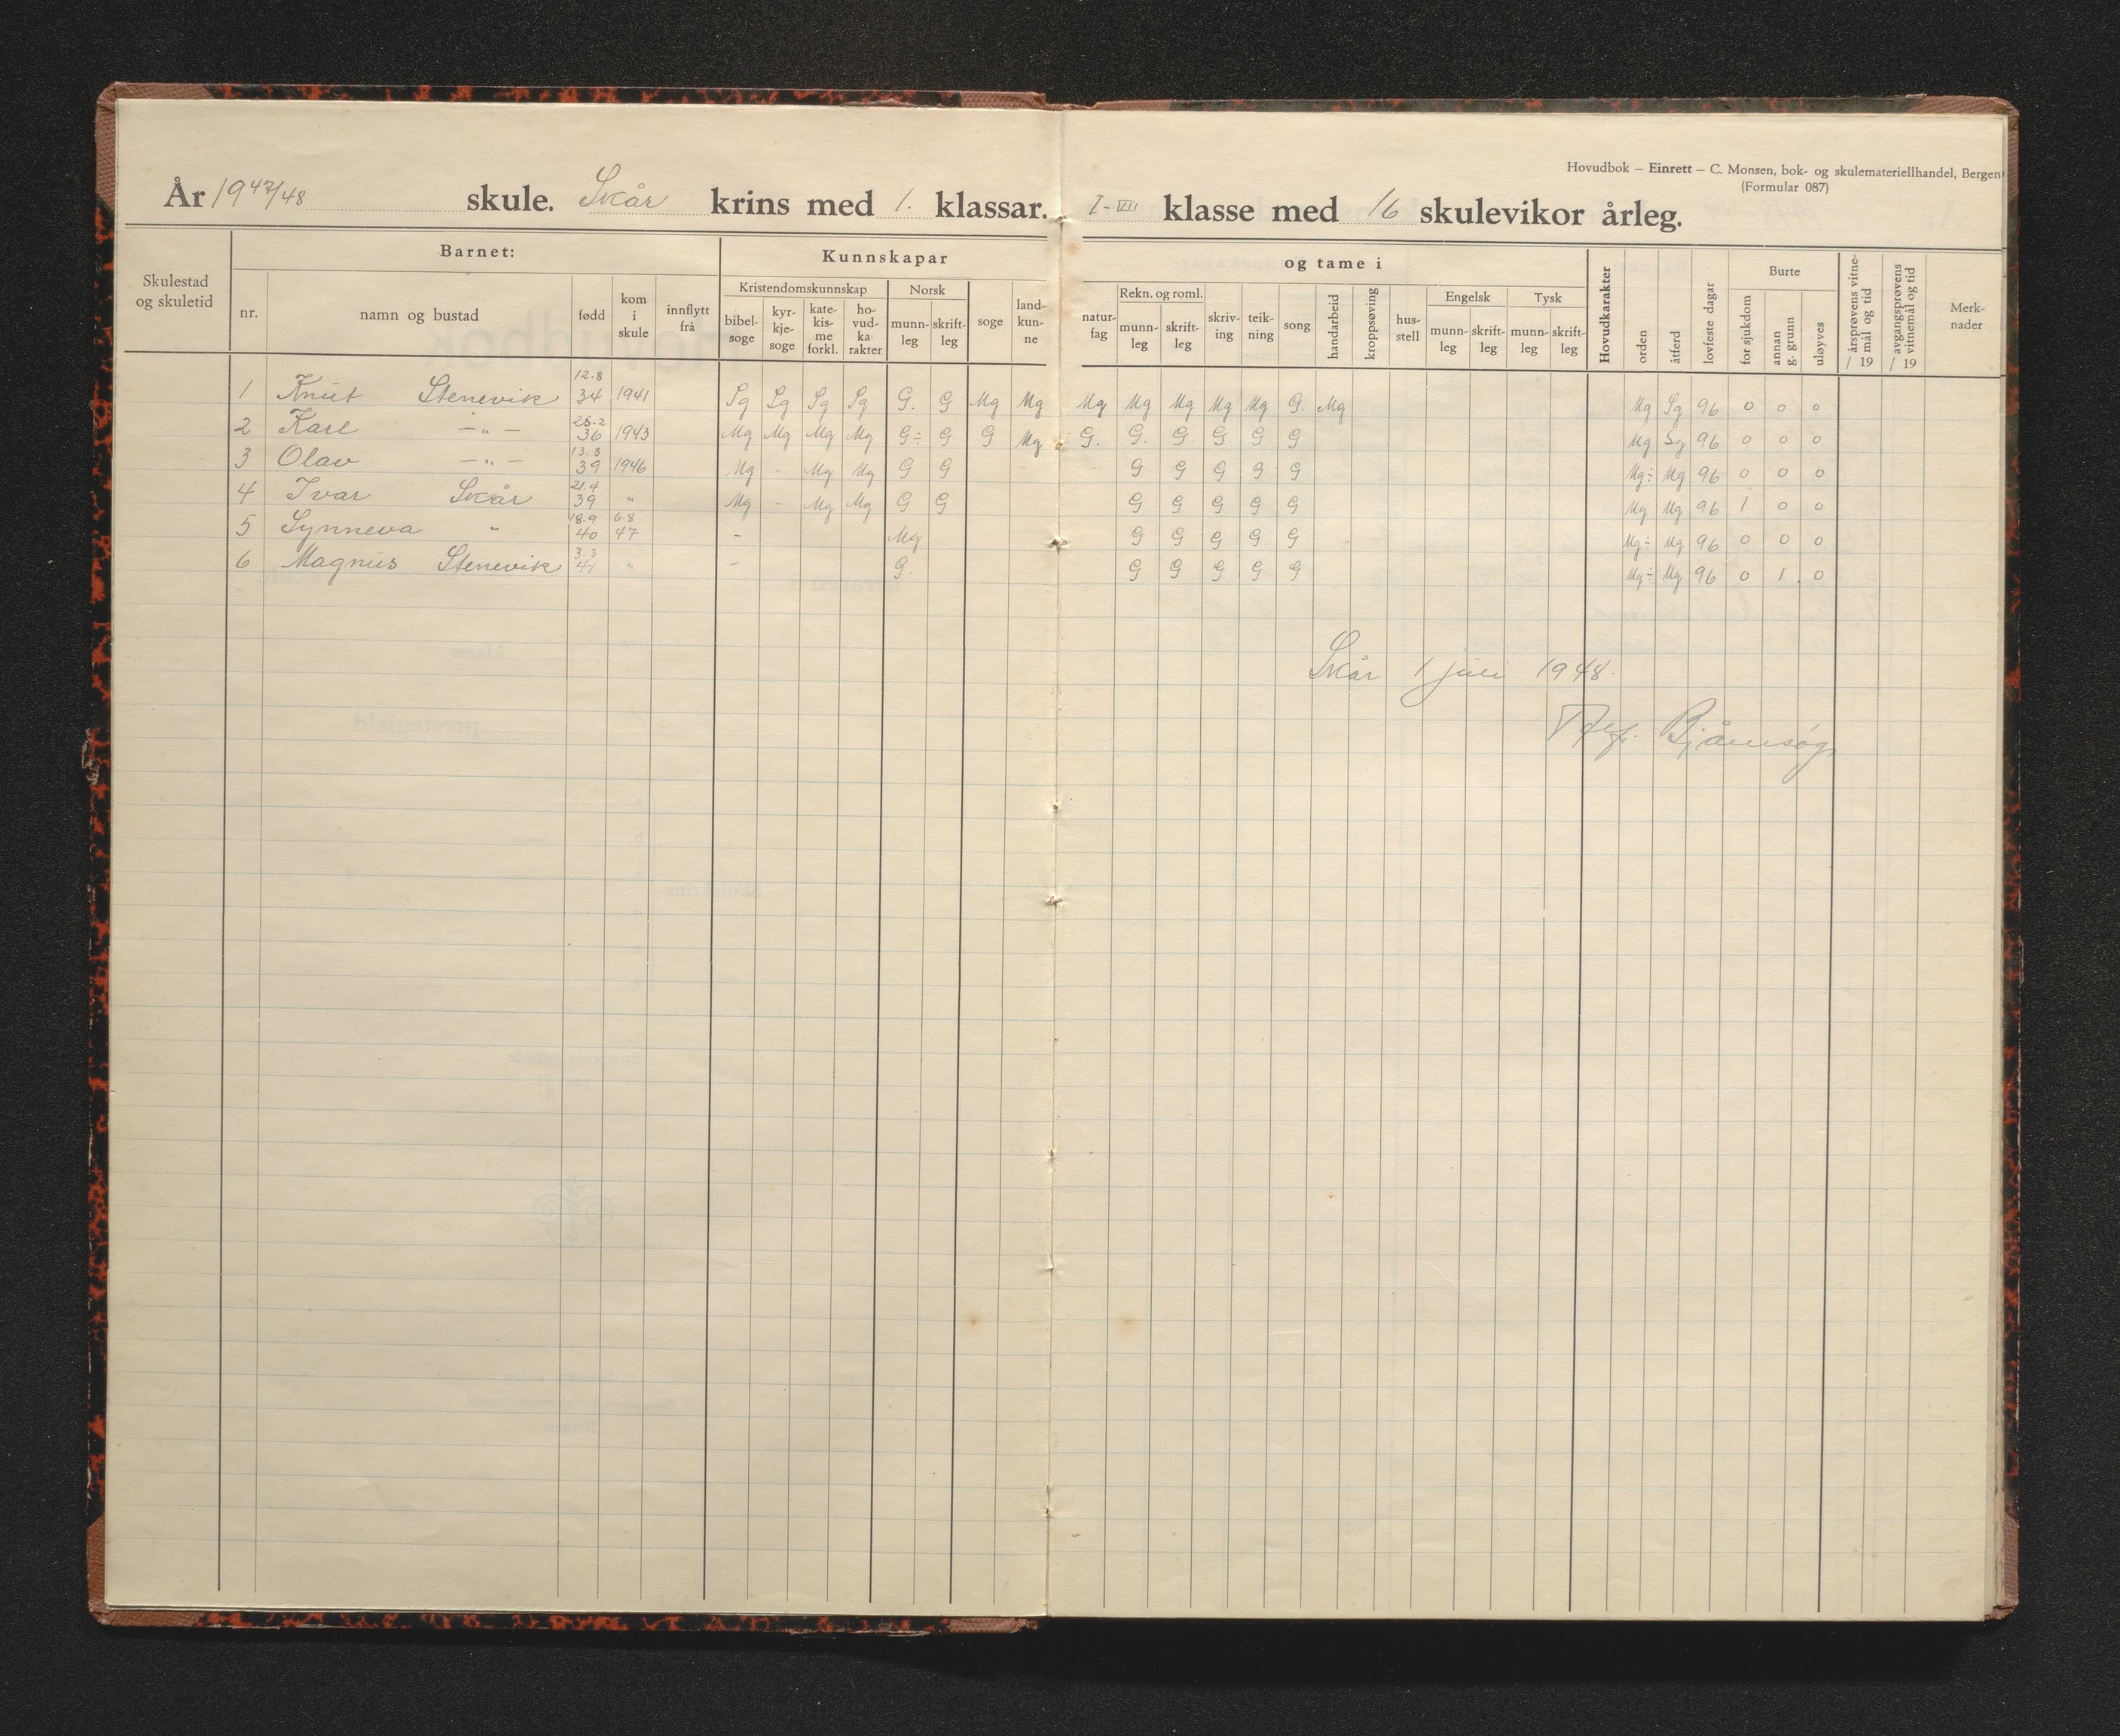 Hovudbok – Einrett – C. Monsen, bok- og skulemateriellhandel, Bergen
(Formular 087)
År 1947/48 skule. Skår krins med 1. klassar. I-VII klasse med 16 skulevikor årleg.
Skulestad og skuletid
Barnet:
nr. namn og bustad fødd kom i skule innflytt frå
Kunnskapar og tame i
Kristendomskunnskap
bibel-soge kyr-kje-soge kate-kis-me forkl. ho-vud-ka-rakter
Norsk
munn-leg skrift-leg
soge land-kun-ne natur-fag
Rekn. og roml.
munn-leg skrift-leg
skriv-ing teik-ning song handarbeid kroppsøving hus-stell
Engelsk
munn-leg skrift-leg
Tysk
munn-leg skrift-leg
Hovudkarakter orden åtferd lovfeste dagar
Burte
for sjukdom annan g. grunn uløyves
årsprøvens vitne-mål og tid / 19
avgangsprøvens vitnemål og tid / 19
Merk-nader
1 Knut Stenevik 12.8 34 1941 Sg Sg Sg Sg G. G Mg Mg Mg Mg Mg Mg Mg G. Mg Mg Sg 96 0 0 0
2 Kare –„– 25.2 36 1943 Mg Mg Mg Mg G÷ G G Mg G. G. G G G G Mg Sg 96 0 0 0
3 Olav –„– 13.3 39 1946 Mg - Mg Mg G G G G G G G Mg÷ Mg 96 0 0 0
4 Ivar Skår 21.4 39 „ Mg - Mg Mg G G G G G G G Mg Mg 96 1 0 0
5 Synneva „ 18.9 40 6.8 47 - Mg G G G G G Mg÷ Mg 96 0 0 0
6 Magnus Stenevik 3.3 41 „ - G. G G G G G Mg÷ Mg 96 0 1. 0
Skår 1 juli 1948.